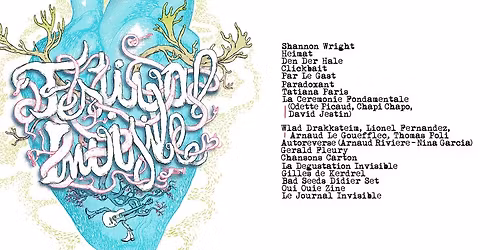 Festival
Invisible
Shannon Wright
Heimat
Den Der Hale
Clickbait
Far Le Gast
Paradoxant
Tatiana Paris
La Ceremonie Fondamentale
(Odette Picaud, Chapi Chapo,
David Jestin)
Wlad Drakksteim, Lionel Fernandez,
Arnaud Le Gouefflec, Thomas Poli
Autoreverse (Arnaud Riviere-Nina Garcia)
Gerald Fleury
Chansons Carton
La Degustation Invisible
Gilles de Kerdrel
Bad Seeds Didier Set
Oui Ouie Zine
Le Journal Invisible